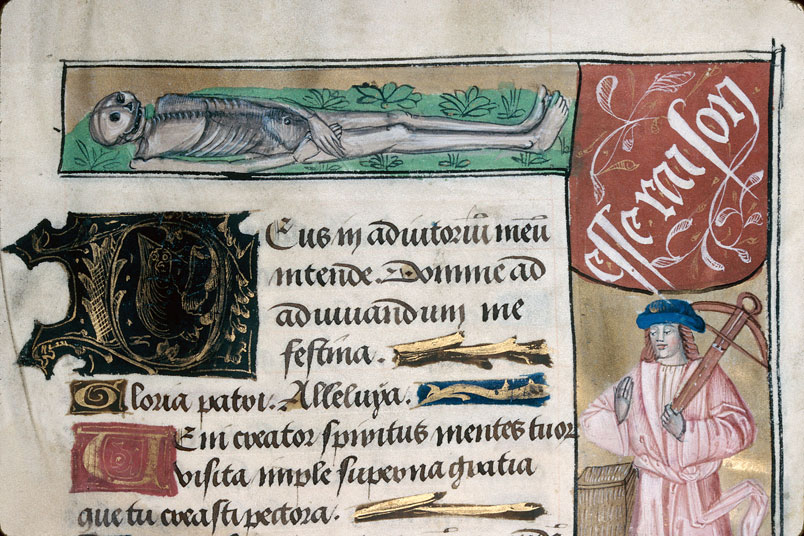 Deus in adiutoriū meū
intende. Domine ad
adiuuandum me
festina.
Gloria patri. Alleluya.
Veni creator spiritus mentes tuor
visita imple superna gratia
que tu creasti pectora.